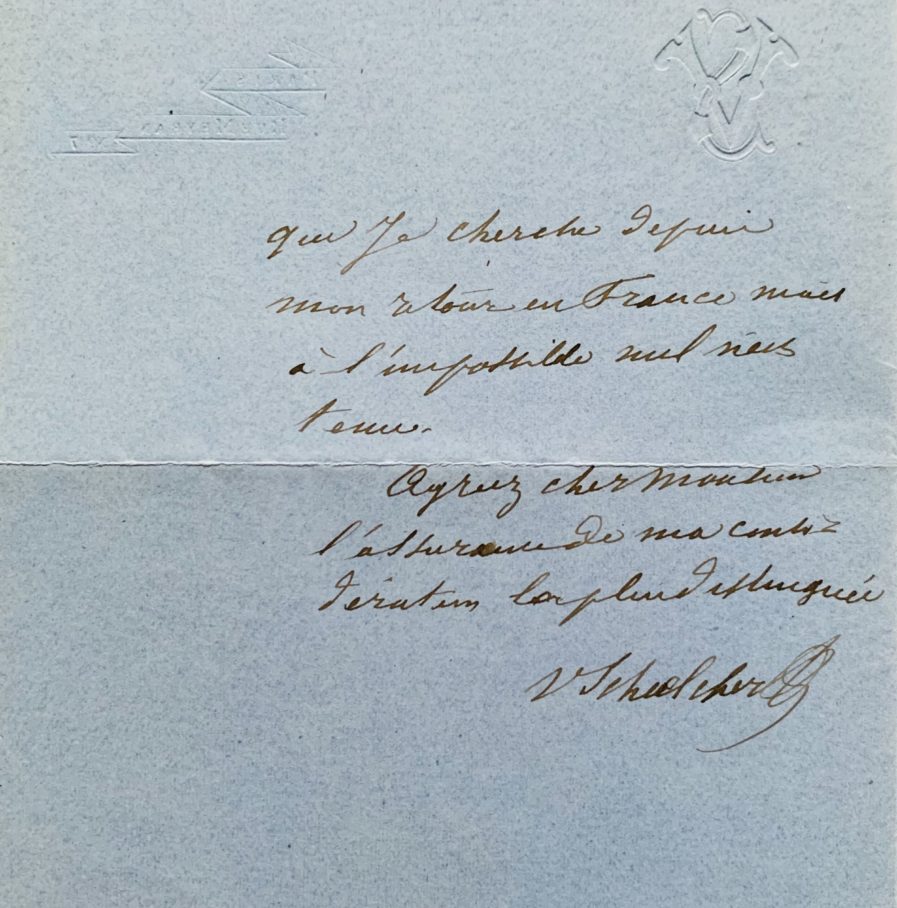 que Je cherche depuis
mon retour en France mais
à l'impossible nul n'est
tenu.
Agréez cher Monsieur
l'assurance de ma consi-
dération la plus distinguée
V Schoelcher